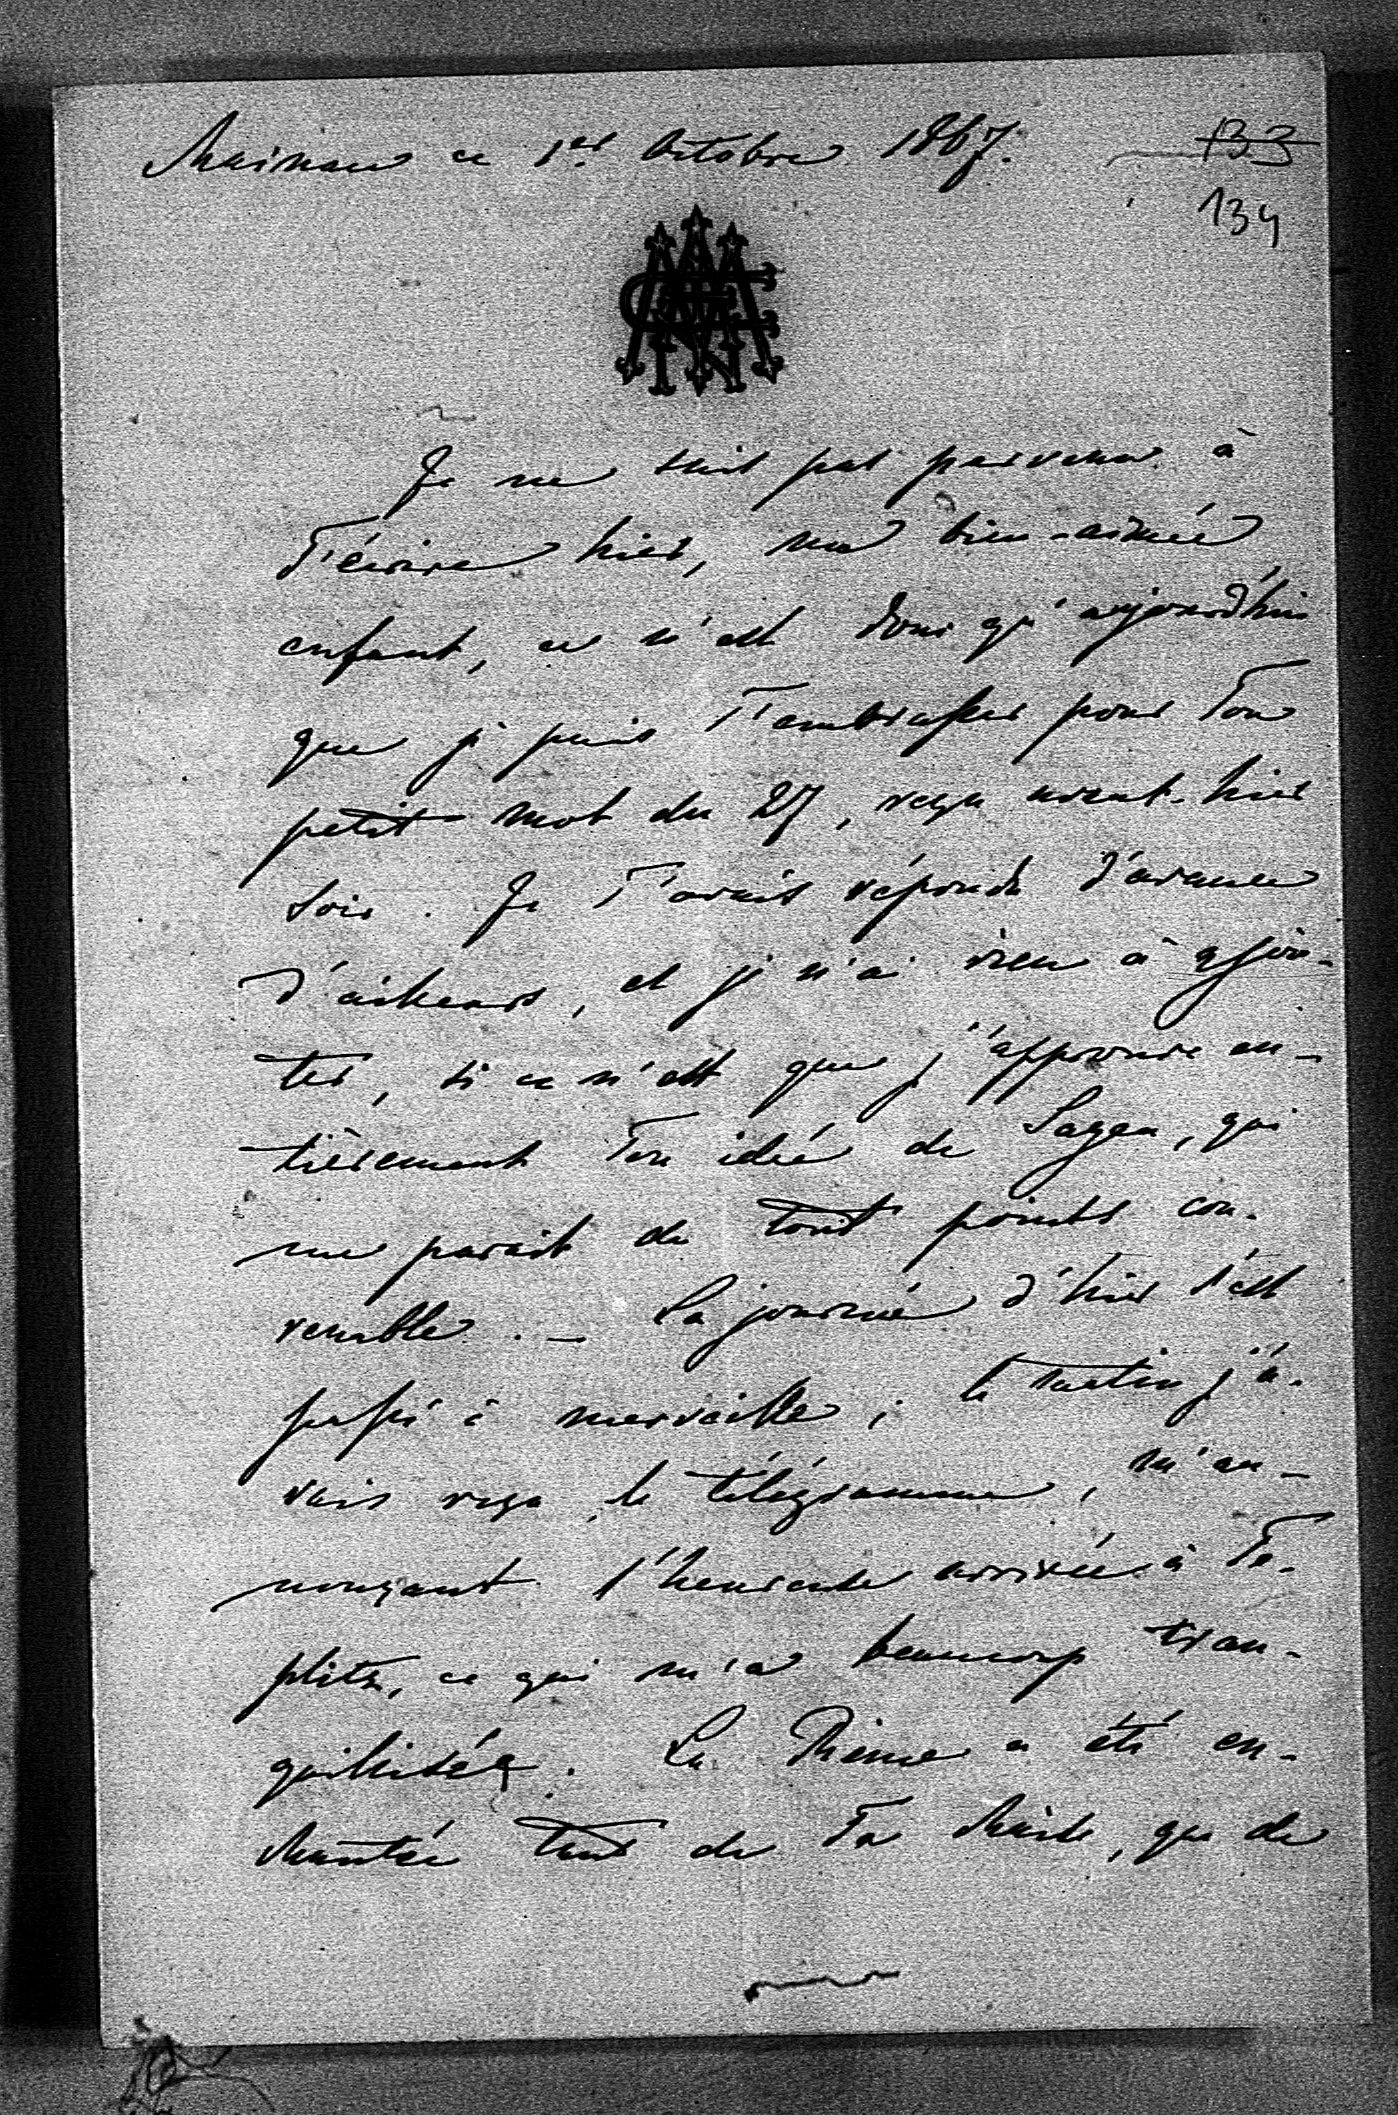 Mainau ce 1er Octobre 1867.
133
134
Je ne suis pas parvenu à
T'écrire hier, ma bien-aimée
enfant, ce n'est donc qu'aujourd'hui
que je puis T'embrasser pour Ton
petit mot du 27, reçu avant-hier
soir. Je T'avais répondu d'avance
d'ailleurs, et je n'ai rien à ajou-
ter, si ce n'est que j'approuve en-
tièrement Ton idée de Sagan, qui
me parait de tout points con-
venable. — La journée d'hier s'est
passé à merveille; le matin j'a-
vais reçu le télégramme, m'an-
nonçant l'heureuse arrivée à Te-
plitz, ce qui m'a beaucoup tran-
quillisée. La Reine a été en-
chantée tant de Ta lettre, que de